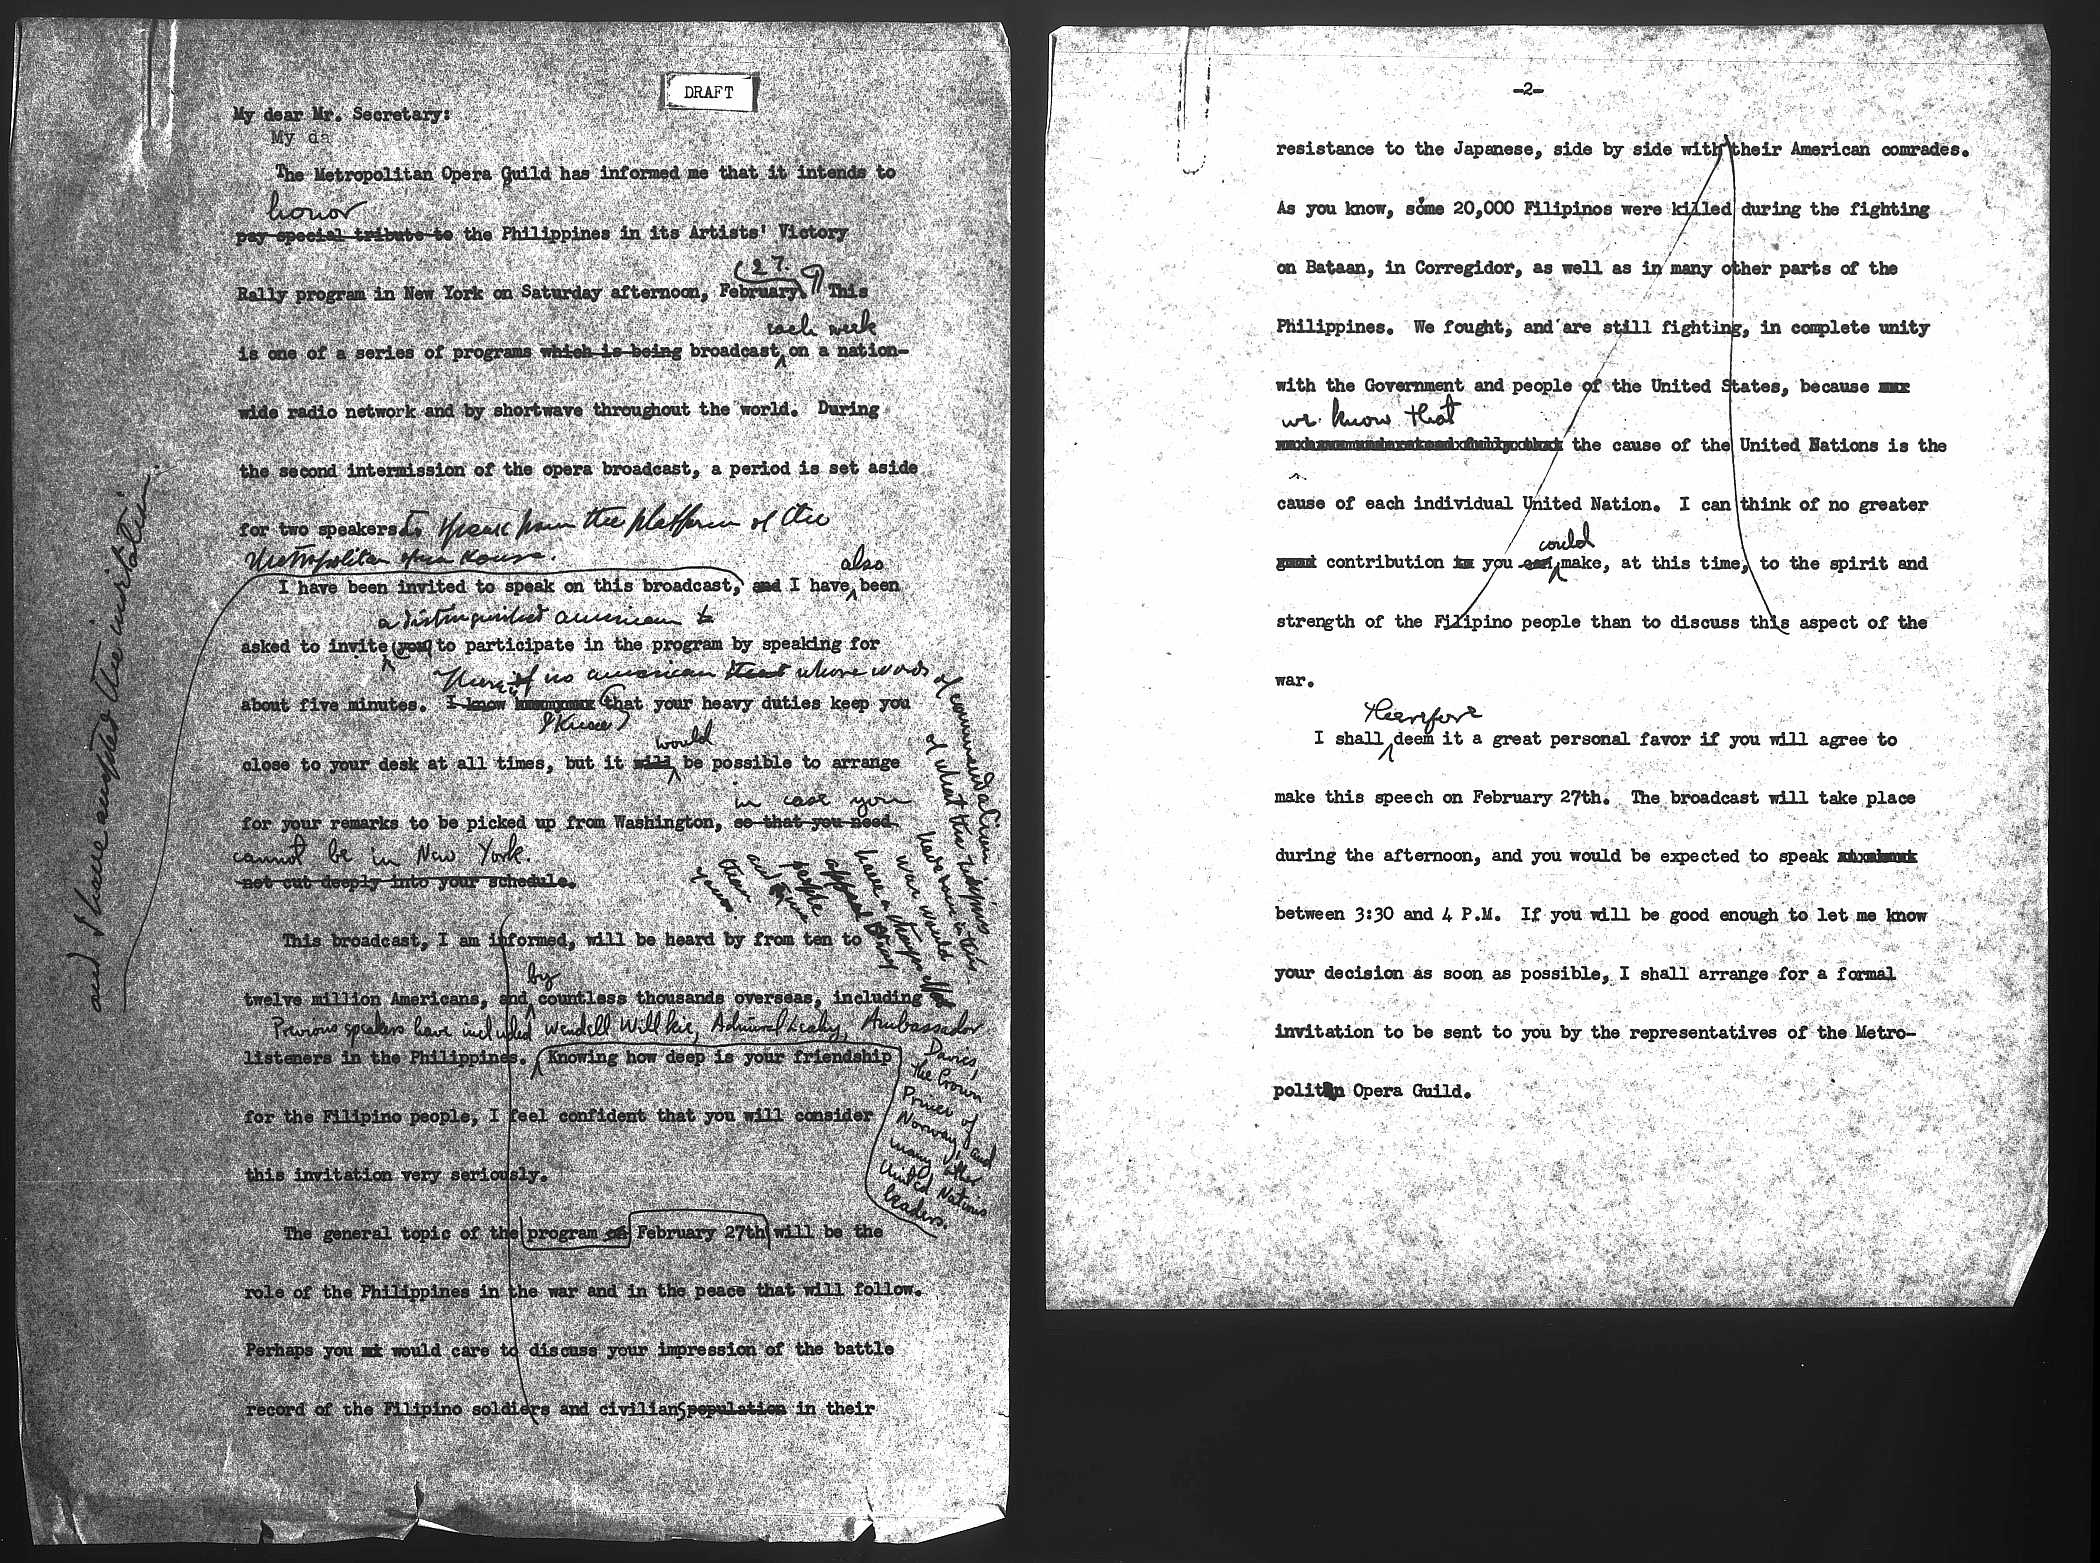 DRAFT
My dear Mr. Secretary:
My da
The Metropolitan Opera Guild has informed me that it intends to
honor
pay special tribute to the Philippines in its Artists' Victory
(27.
Rally program in New York on Saturday afternoon, February. This
each week
is one of a series of programs which is being broadcast on a nation-
wide radio network and by shortwave throughout the world. During
the second intermission of the opera broadcast, a period is set aside
for two speakers to speak from the platform of the
Metropolitan Opera House.
also
I have been invited to speak on this broadcast, and I have been
and I have accepted the invitation.
a distinguished American to
asked to invite you to participate in the program by speaking for
There is no American that whose words
of commendation
of what the Filipinos
have done in this
war would
have a stronger effect
appeal
people
and
than
yours
about five minutes. I know that your heavy duties keep you
I know
would
close to your desk at all times, but it will be possible to arrange
in case you
for your remarks to be picked up from Washington, so that you need
cannot be in New York.
not cut deeply into your schedule.
This broadcast, I am informed, will be heard by from ten to
by
twelve million Americans, and countless thousands overseas, including
Previous speakers have included Wendell Willkie, Admiral Leahy, Ambassador
Davies,
the Crown
Prince of
Norway, and
many other
United Nations
leaders.
listeners in the Philippines. Knowing how deep is your friendship
for the Filipino people, I feel confident that you will consider
this invitation very seriously.
The general topic of the program on February 27th will be the
role of the Philippines in the war and in the peace that will follow.
Perhaps you would care to discuss your impression of the battle
record of the Filipino soldiers and civilians population in their
-2-
resistance to the Japanese, side by side with their American comrades.
As you know, some 20,000 Filipinos were killed during the fighting
on Bataan, in Corregidor, as well as in many other parts of the
Philippines. We fought, and are still fighting, in complete unity
with the Government and people of the United States, because
we know that
the cause of the United Nations is the
cause of each individual United Nation. I can think of no greater
could
contribution you can make, at this time, to the spirit and
strength of the Filipino people than to discuss this aspect of the
war.
therefore
I shall deem it a great personal favor if you will agree to
make this speech on February 27th. The broadcast will take place
during the afternoon, and you would be expected to speak
between 3:30 and 4 P.M. If you will be good enough to let me know
your decision as soon as possible, I shall arrange for a formal
invitation to be sent to you by the representatives of the Metro-
politan Opera Guild.